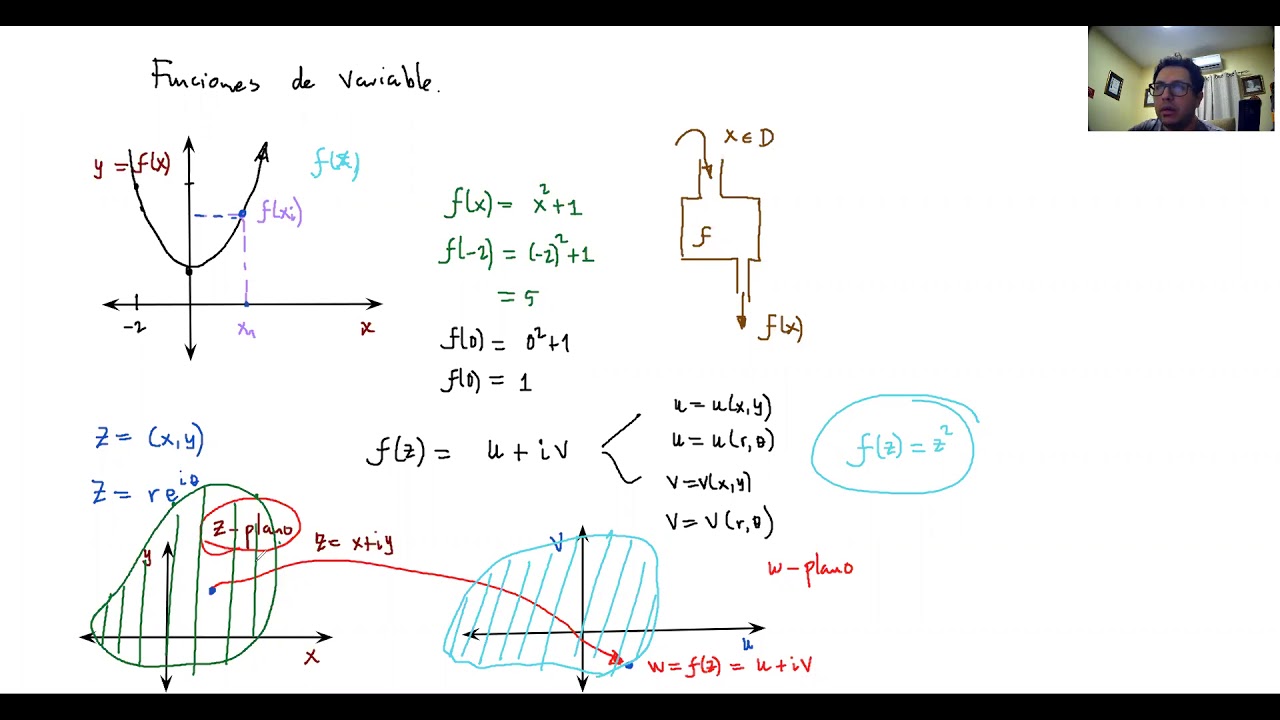 Funciones de variable.
y = f(x)
f(z)
f(xi)
-2
x₁
x
f(x) = x²+1
f(-2) = (-2)²+1
= 5
f(0) = 0²+1
f(0) = 1
x ∈ D
f
f(x)
z = (x,y)
z = re^{iθ}
f(z) = u + iv
u = u(x,y)
u = u(r,θ)
v = v(x,y)
v = v(r,θ)
f(z) = z²
z-plano
y
x
z = x+iy
v
u
w-plano
w = f(z) = u + iv